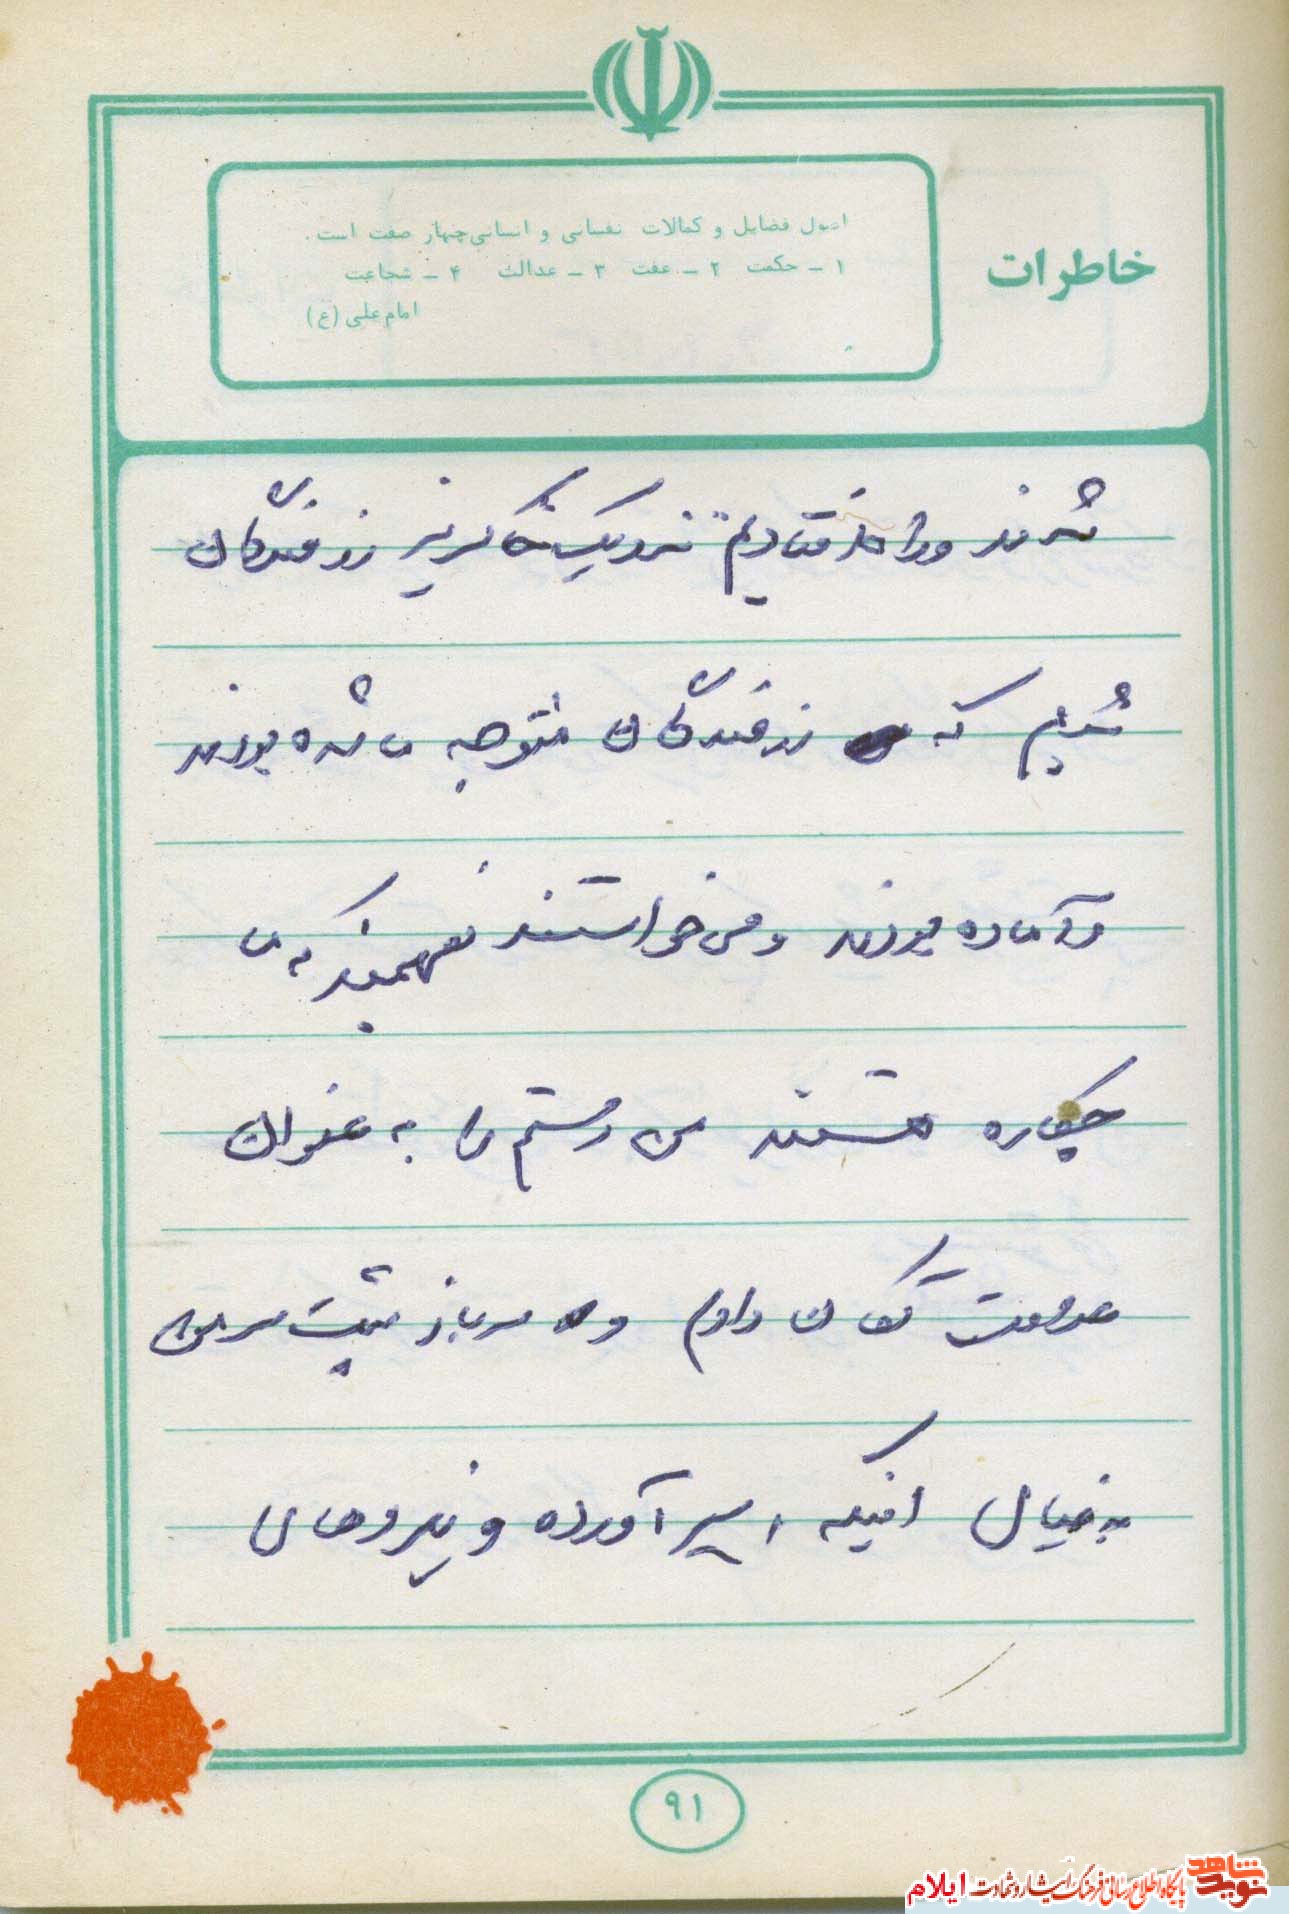 خاطرات
اصول فضایل و کمالات نفسانی و انسانی چهار صفت است.
۱ - حکمت ۲ - عفت ۳ - عدالت ۴ - شجاعت
امام علی (ع)
شدند و راه افتادیم نزدیک سنگر نیز رزمندگان
شدیم که رزمندگان متوجه ما شده بودند
و آماده بودند و می خواستند بفهمند که ما
چکاره هستند من دستم را به عنوان
علامت تکان دادم و سرباز پشت سر من
به خیال اینکه اسیر آورده و نیروهای
۹۱
نوید شاهد
پایگاه اطلاع رسانی فرهنگ ایثار و شهادت ایلام